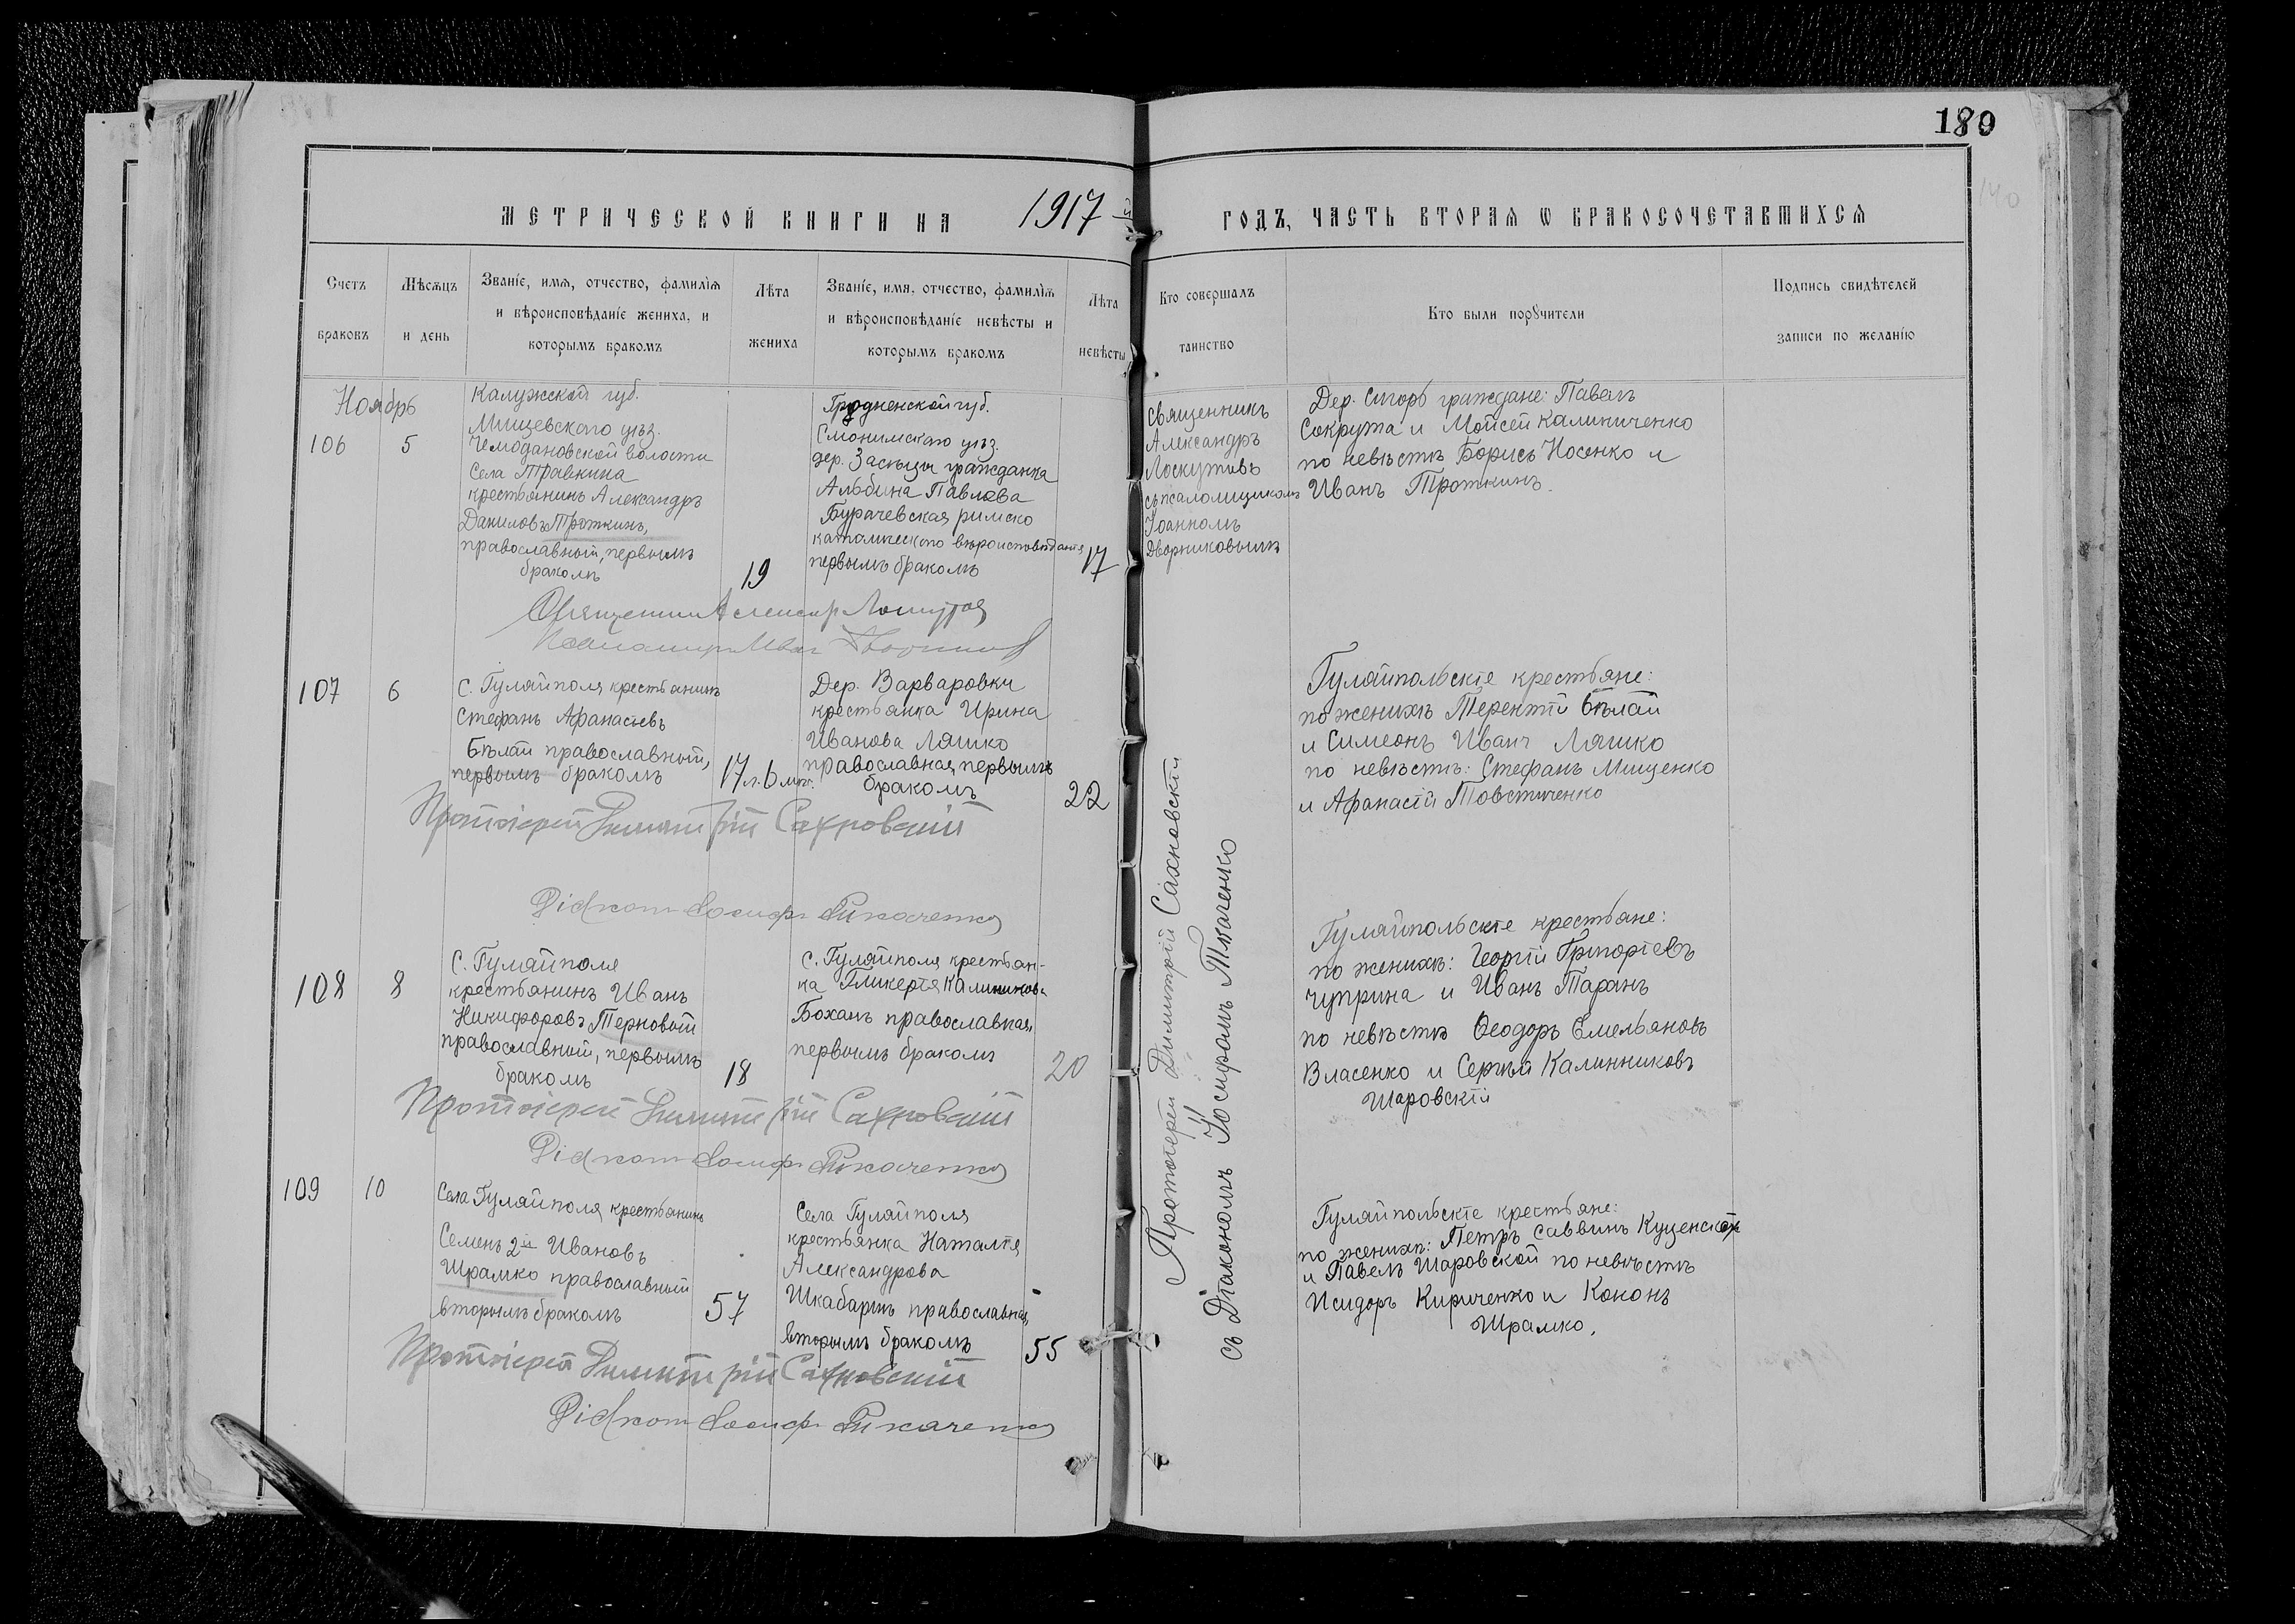 180
МЕТРИЧЕСКОЙ КНИГИ НА 1917 й ГОДЪ, ЧАСТЬ ВТОРАЯ Ѡ БРАКОСОЧЕТАВШИХСЯ
Счетъ браковъ
Мѣсяцъ и день
Званіе, имя, отчество, фамилія
и вѣроисповѣданіе жениха, и
которымъ бракомъ
Лѣта жениха
Званіе, имя, отчество, фамилія
и вѣроисповѣданіе невѣсты и
которымъ бракомъ
Лѣта невѣсты
Кто совершалъ таинство
Кто были поручители
Подпись свидѣтелей
записи по желанію
Ноябрь
106
5
Калужской губ.
Мищевского уѣз.
Чемодановской волости
Села Травкина
крестьянинъ Александръ
Даниловъ Троткинъ,
православный, первымъ
бракомъ
19
Гродненской губ.
Слонимскаго уѣз.
гражданка
Альбина Павлова
Бурачевская римско
католическаго вѣроисповѣданія
первымъ бракомъ
17
Священникъ
Александръ
Лоскутовъ
съ псаломщикомъ
Іоанномъ
Дворниковымъ
граждане: Павелъ
Сокрута и Мойсей Калиниченко
по невѣстѣ Борисъ Носенко и
Иванъ Троткинъ.
107
6
С. Гуляйполя крестьянинъ
Стефанъ Афанасіевъ
Бѣлай православный,
первымъ бракомъ
17 л. 6 мѣс.
Дер. Варваровки
крестьянка Ирина
Иванова Ляшко
православная, первымъ
бракомъ
22
Гуляйпольскіе крестьяне:
по женихѣ Терентій Бѣлай
и Симеонъ Иванъ Ляшко
по невѣстѣ: Стефанъ Мищенко
и Афанасій Товстиченко
Протоіерей Димитрій Сахновскій
Діаконъ Іосифъ Ткаченко
108
8
С. Гуляйполя
крестьянинъ Иванъ
Никифоровъ Терновый
православный, первымъ
бракомъ
18
С. Гуляйполя крестьян-
ка Гликерія Калиникова
Боханъ православная,
первымъ бракомъ
20
Гуляйпольскіе крестьяне:
по женихѣ: Георгій Григоріевъ
Чуприна и Иванъ Таранъ
по невѣстѣ Ѳеодоръ Емельяновъ
Власенко и Сергѣй Калинниковъ
Шаровскій
Протоіерей Димитрій Сахновскій
Діаконъ Іосифъ Ткаченко
109
10
Села Гуляйполя крестьянинъ
Семенъ 2й Ивановъ
Шрамко православный
вторымъ бракомъ
57
Села Гуляйполя
крестьянка Наталія
Александрова
Шкабаринъ православная,
вторымъ бракомъ
55
Гуляйпольскіе крестьяне:
по женихѣ: Петръ Саввинъ
и Павелъ Шаровской по невѣстѣ
Исидоръ Кириченко и Кононъ
Шрамко.
Протоіерей Димитрій Сахновскій
Діаконъ Іосифъ Ткаченко
Протоіерей Димитрій Сахновскій
съ Діакономъ Іосифомъ Ткаченко